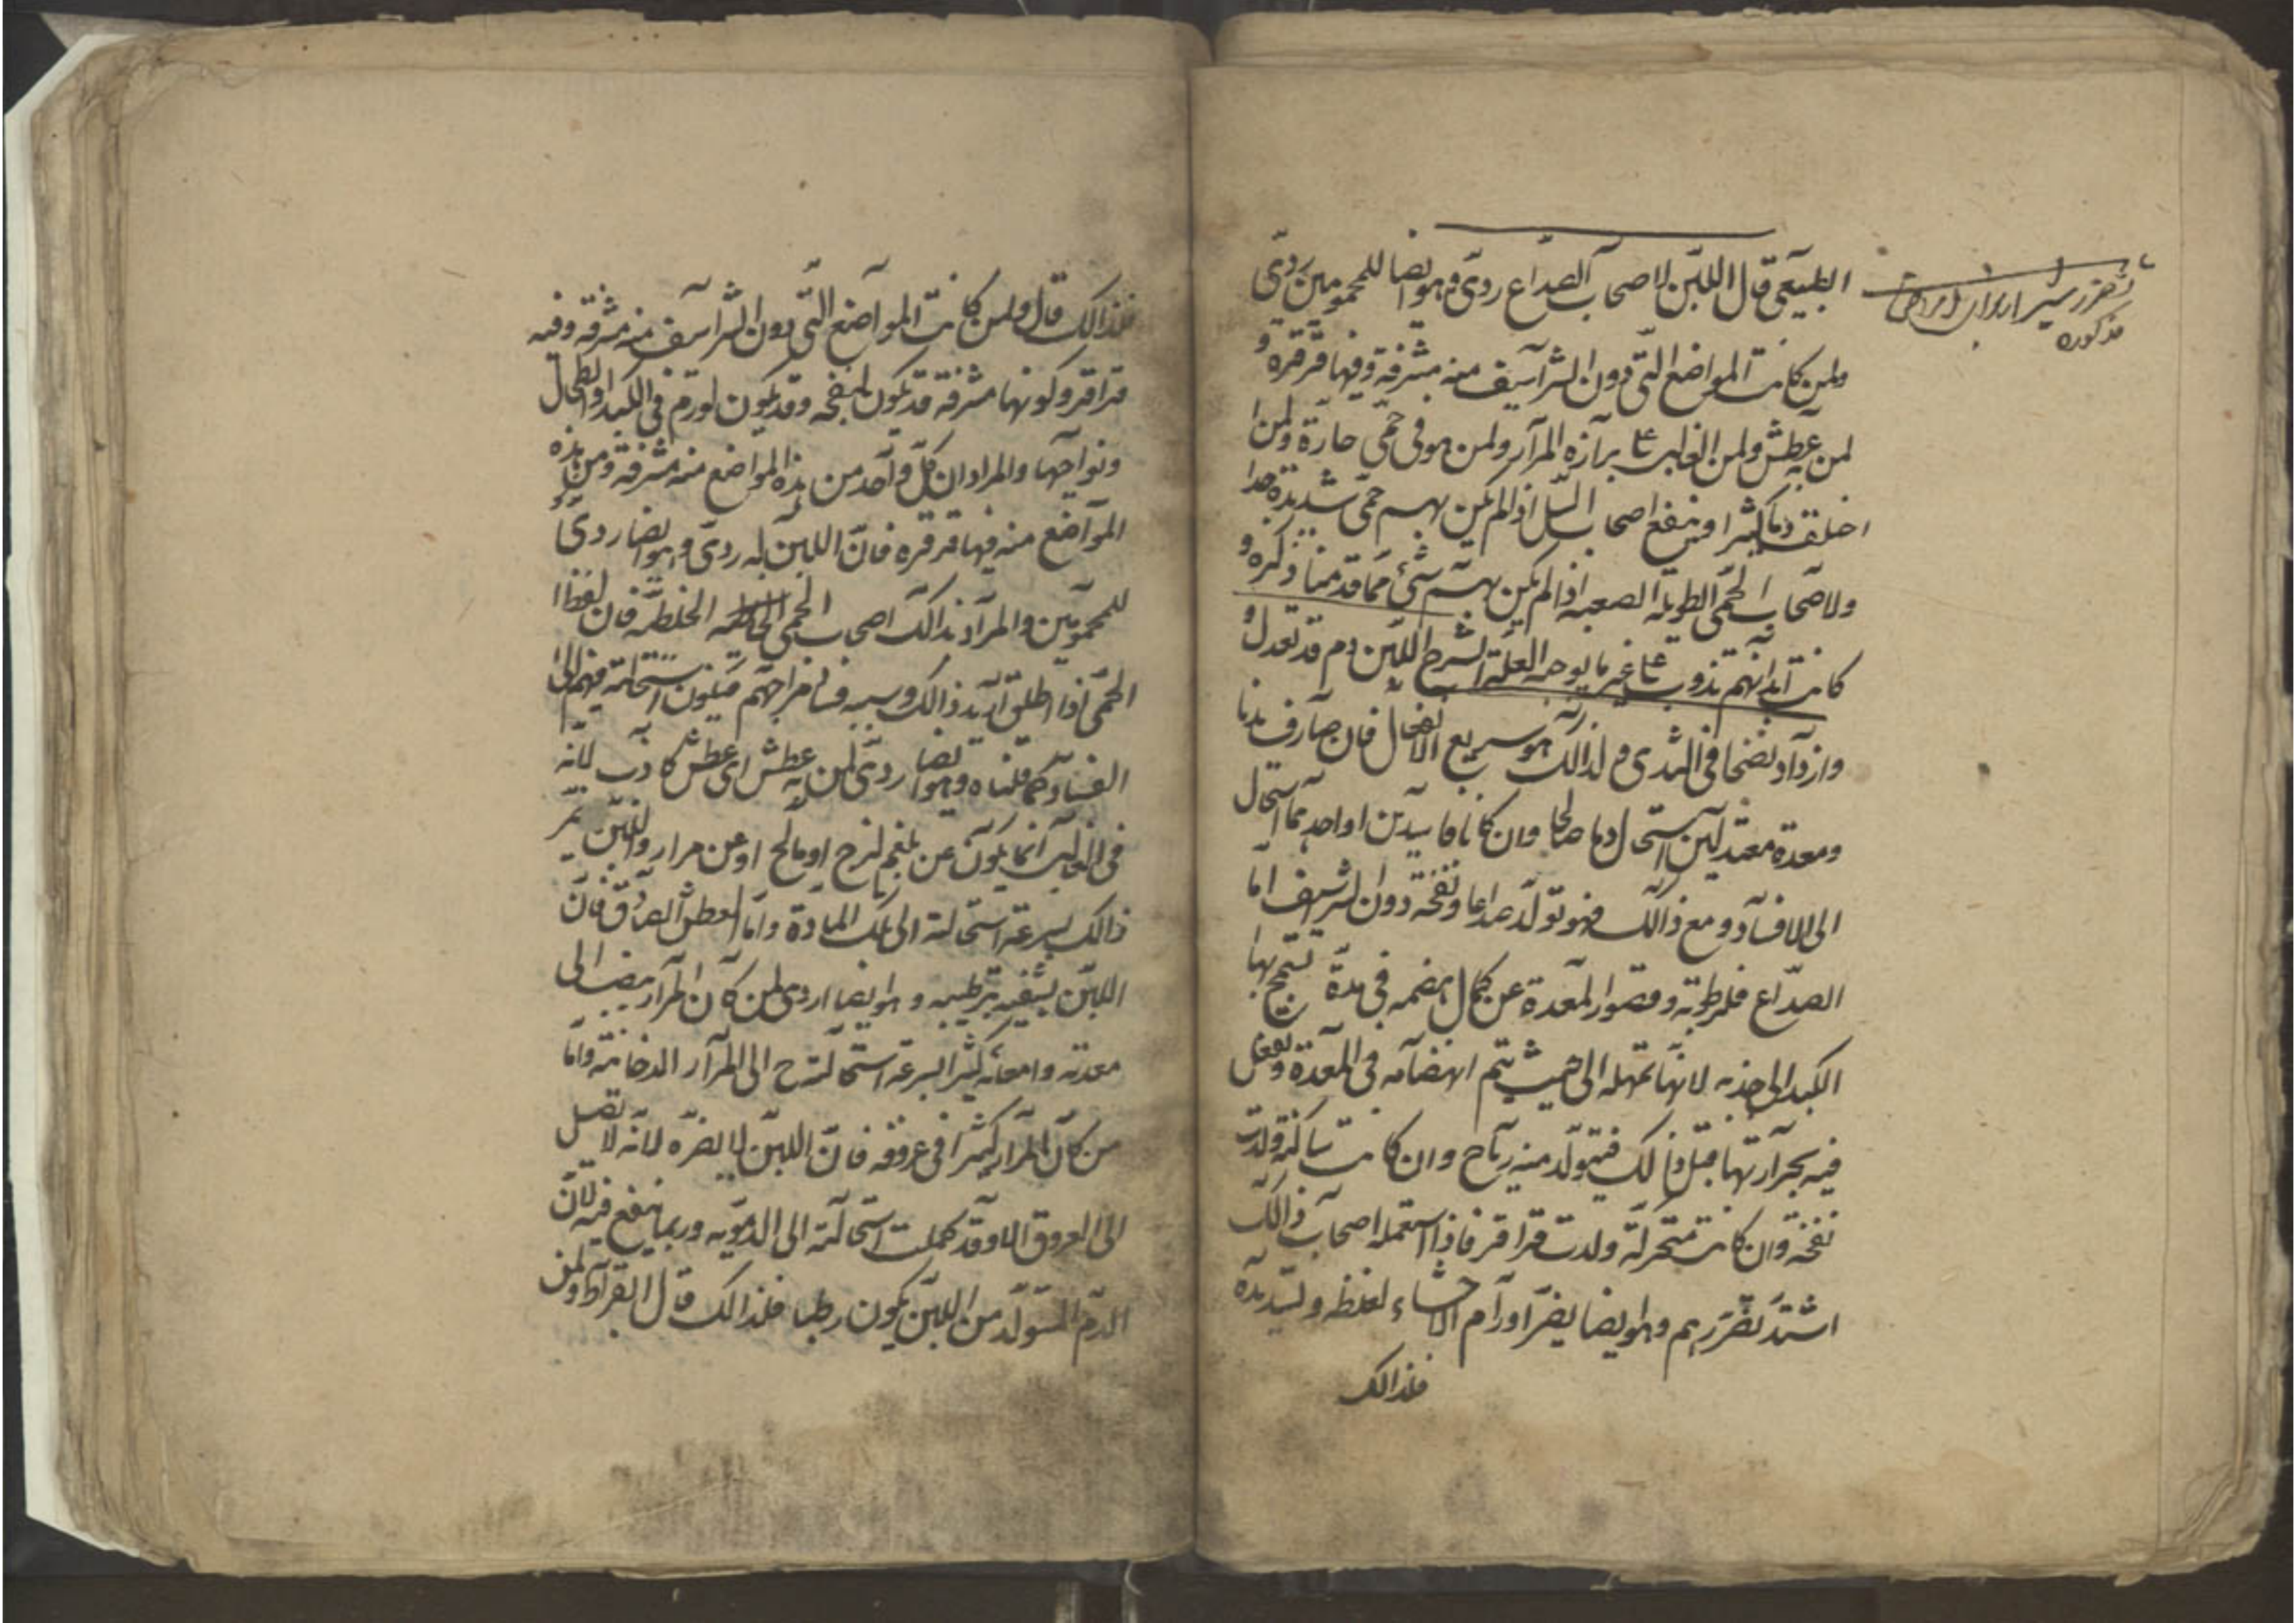 الطبيعي قال اللبن لاصحاب الصداع ردى وهو ايضا للمحمومين ردى
ولمن كانت المواضع التى دون الشراسيف منه مشرفة وفيها قرقرة و
لمن به عطش ولمن الغالب على برازه المرار ولمن هو فى حمى حارة ولمن
اختلف دما كثيرا وينفع اصحاب السل اذا لم يكن بهم حمى شديدة جدا
ولاصحاب الحمى الطويلة الصعبة اذا لم يكن بهم شئ مما قدمنا ذكره و
كانت ابدانهم تذوب على غير ما يوجبه العلة الشرح اللبن دم قد تعدل و
وازداد نضجا فى الثدى ولذالك هو سريع الانفعال فان صادف بدنا
ومعدة معتدلين استحال دما صالحا وان كانا فاسدين او احدهما استحال
الى الافساد ومع ذالك فهو تولد صداعا ونفخة دون الشراسيف اما
الصداع فلرطوبته وقصور المعدة عن كمال هضمه فى مدة
الكبد الى جذبه لانها تمهله الى حيث يتم انهضامه فى المعدة وتفعل
فيه بحرارتها قبل ذالك فيتولد منه رياح وان كانت ساكنة ولدت
نفخة وان كانت متحركة ولدت قراقر فاذا استعمله اصحاب ذالك
اشتد تضررهم وهو ايضا يضر اورام الاحشاء لغلظه وتسديده
فلذالك
تضرر شير ابدان امراض
مذكوره
فلذالك قال ولمن كانت المواضع التى دون الشراسيف منه مشرفة وفيه
قراقر وكونها مشرفة قد تكون لنفخه وقد يكون لورم فى الكبد او الطحال
ونواحيها والمراد ان كل واحد من هذه المواضع منه مشرفة ومن هذه
المواضع منه فيها قرقره فان اللبن له ردى وهو ايضا ردى
للمحمومين والمراد بذالك اصحاب الحمى الخلطيه فان لفظ
الحمى اذا اطلق اريد ذالك وسببه فساد مزاجهم فيكون استحالته فيهم الى
الفساد كما قلناه وهو ايضا ردى لمن به عطش اى عطش كاذب لانه
فى الغالب انما يكون عن بلغم لزج او مالح او عن مرار واللبن
ذالك بسرعة استحالته الى تلك المادة واما العطش الصادق فان
اللبن يشفيه بترطيبه وهو ايضا ردى لمن كان المرار ينصب الى
معدته وامعائه كثيرا لسرعة استحالته ح الى المرار الدخانية واما
من كان المرار كثيرا فى عروقه فان اللبن لا يضره لانه لا يصل
الى العروق الا وقد كملت استحالته الى الدموية وربما ينفع فيه لان
الدم المتولد من اللبن يكون رطبا فلذالك قال ابقراط ولمن